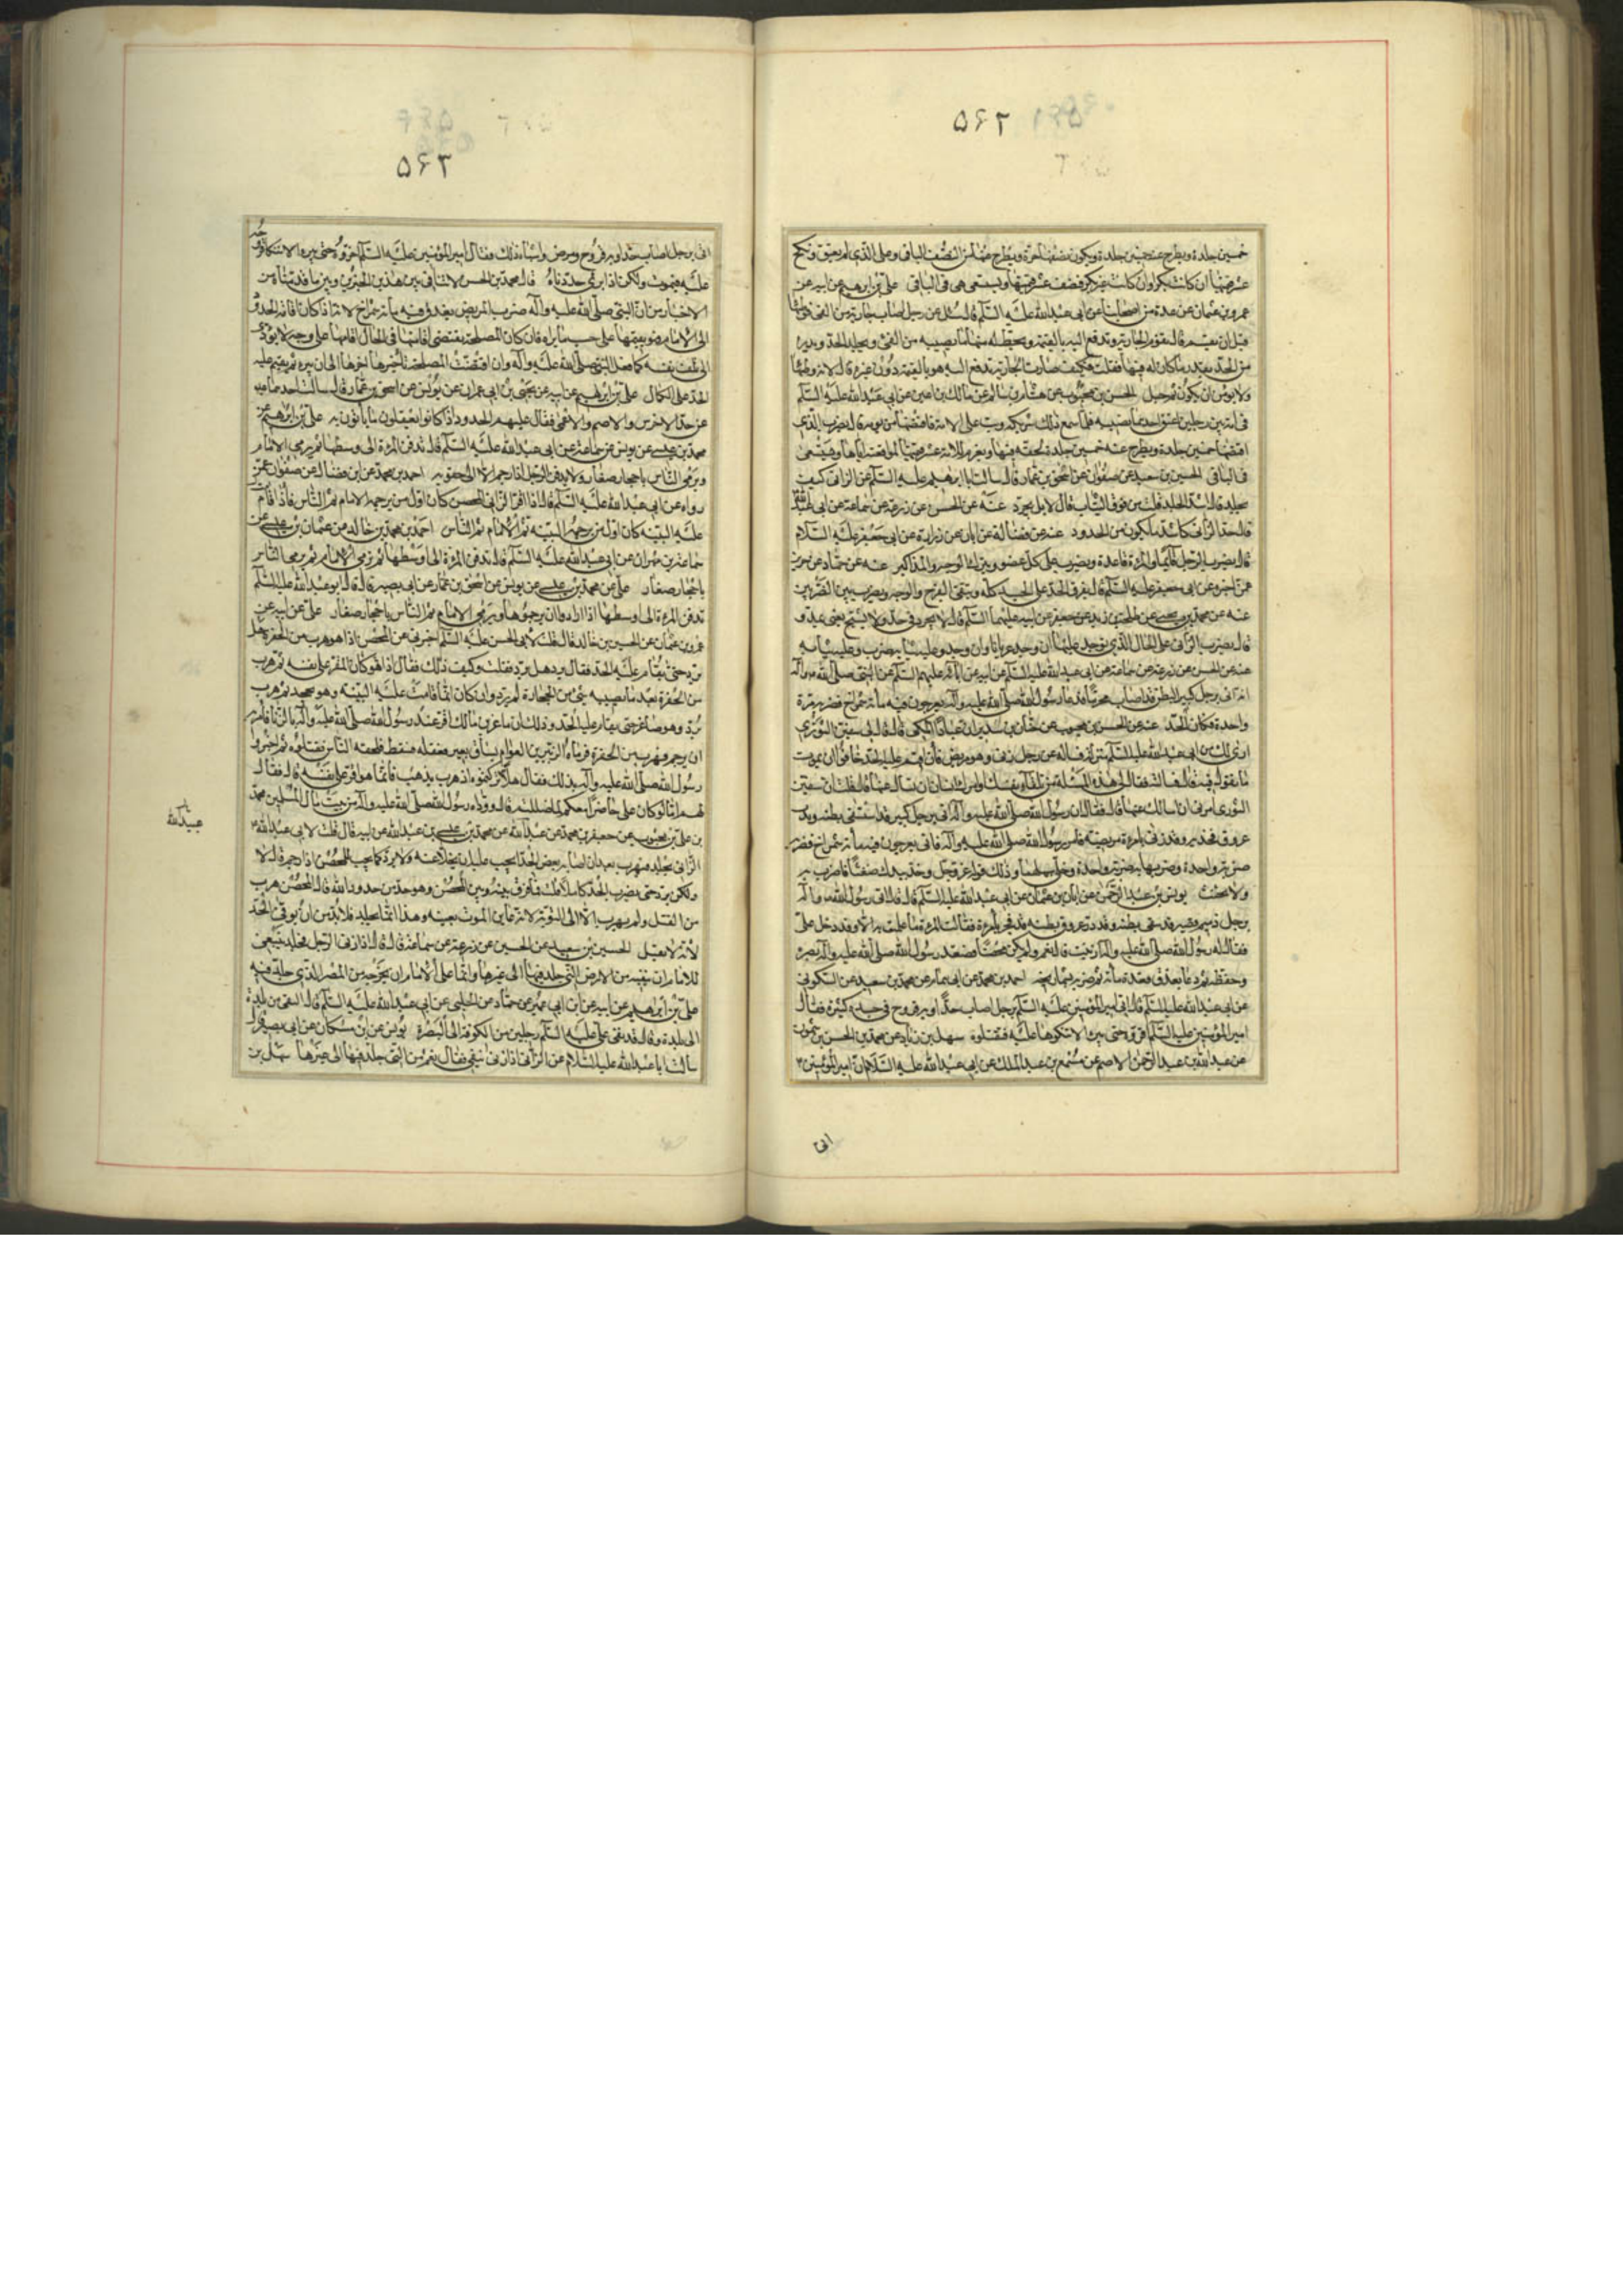 ۵۶۲
خمسين جلدة ويطرح عنه خمسين جلدة ويكون نصفها حرة ويطرح عنها من النصف الباقي وعلى الذي لم يعتق ونكح
عشر قيمتها ان كانت بكرا وان كانت غير بكر فنصف عشر قيمتها ويستسعى هي في الباقي علي بن ابرهيم عن ابيه عن
عمرو بن عثمان عن عدة من اصحابنا عن ابي عبدالله عليه السلام قال سئل عن رجل اصاب جارية من الفئ فوطئها
قبل ان يقسم قال تقوم الجارية وتدفع اليه بالقيمة ويحط له منها ما يصيبه من الفئ ويجلد الحد ويدرء
من الحد بقدر ما كان له فيها فقلت فكيف صارت الجارية تدفع اليه هو بالقيمة دون غيره قال لانه وطئها
ولا يؤمن ان يكون ثم حبل الحسن بن محبوب عن هشام بن سالم عن مالك بن اعين عن ابي عبدالله عليه السلام
في امة بين رجلين اعتق احدهما نصيبه فلما سمع ذلك شريكه وثب على الامة فاقتضها من يومه قال يضرب الذي
اقتضها خمسين جلدة ويطرح عنه خمسين جلدة بحقه فيها ويغرم للامة عشر قيمتها لمواقعته اياها ويستسعى
في الباقي الحسين بن سعيد عن صفوان عن اسحق بن عمار قال سالت ابا ابرهيم عليه السلام عن الزاني كيف
يجلد قال اشد الجلد قلت من فوق الثياب قال لا بل يجرد عنه عن الحسن عن زرعة عن سماعة عن ابي عبدالله
قال حد الزاني كاشد ما يكون من الحدود عنه عن فضالة عن ابان عن زرارة عن ابي جعفر عليه السلام
قال يضرب الرجل قائما والمرءة قاعدة ويضرب على كل عضو ويترك الوجه والمذاكير عنه عن حماد عن حريز
عمن اخبره عن ابي جعفر عليه السلام قال يفرق الحد على الجسد كله ويتقى الفرج والوجه ويضرب بين الضربين
عنه عن محمد بن يحيى عن طلحة بن زيد عن جعفر عن ابيه عليهما السلام قال لا يجرد في حد ولا يشبح يعني يمد و
قال يضرب الزاني على الحال الذي يوجد عليها ان وجد عريانا وان وجد وعليه ثيابه ضرب وعليه ثيابه
عنه عن الحسن عن زرعة عن سماعة عن ابي عبدالله عليه السلام عن ابيه عن ابائه عليهم السلام عن النبي صلى الله عليه وآله
انه اتي برجل كبير البطن قد اصاب محرما فدعا رسول الله صلى الله عليه وآله بعرجون فيه مائة شمراخ فضربه مرة
واحدة فكان الحد عنه عن الحسن بن محبوب عن حنان بن سدير ان عباد المكي قال قال لي سفين الثوري
ارى لك من ابي عبدالله عليه السلام منزلة فسله عن رجل زنى وهو مريض فان اقيم عليه الحد خافوا ان يموت
ما يقول فيه قال فسالته فقال لي هذه المسئلة من تلقاء نفسك او امرك انسان ان تسال عنها قال قلت ان سفين
الثوري امرني ان اسالك عنها قال فقال ان رسول الله صلى الله عليه وآله اتي برجل كبير قد استسقى بطنه وبدت
عروق فخذيه وقد زنى بامرءة مريضة فامر رسول الله صلى الله عليه وآله فاتي بعرجون فيه مائة شمراخ فضربه
ضربة واحدة وضربها به ضربة واحدة وخلى سبيلهما وذلك قوله عز وجل وخذ بيدك ضغثا فاضرب به
ولا تحنث يونس بن عبدالرحمن عن ابان بن عثمان عن ابي عبدالله عليه السلام قال اتي رسول الله صلى الله عليه وآله
برجل دميم قصير قد سقى بطنه وقد در عروق بطنه قد فجر بامرءة فقالت المرءة ما علمت به الا وقد دخل علي
فقال له رسول الله صلى الله عليه وآله ازنيت قال نعم ولم يكن محصنا فصعد رسول الله صلى الله عليه وآله بصره
وخفضه ثم دعا بعذق فعده مائة ثم ضربه بشماريخه احمد بن محمد عن ابي همام عن محمد بن سعيد عن السكوني
عن ابي عبدالله عليه السلام قال اتي امير المؤمنين عليه السلام برجل اصاب حدا وبه قروح في جسده كثيرة فقال
امير المؤمنين عليه السلام اقروه حتى يبرء لا تنكوها عليه فتقتلوه سهل بن زياد عن محمد بن الحسن بن شمون
عن عبدالله بن عبدالرحمن الاصم عن مسمع بن عبدالملك عن ابي عبدالله عليه السلام ان امير المؤمنين ع
اتي
۵۶۳
اتي برجل اصاب حدا وبه قروح ومرض واشباه ذلك فقال امير المؤمنين عليه السلام اخروه حتى يبرء لا تنكا قروحه
عليه فيموت ولكن اذا برئ حددناه قال محمد بن الحسن لا تنافي بين هذين الخبرين وبين ما قدمناه من
الاخبار من ان النبي صلى الله عليه وآله ضرب المريض بعذق فيه مائة شمراخ لانه اذا كان اقامة الحدود
الى الامام فهو يقيمها على حسب ما يراه فان كان المصلحة تقتضي اقامتها في الحال اقامها على وجه لا يؤدي
الى تلف نفسه كما فعل النبي صلى الله عليه وآله وان اقتضت المصلحة تاخيرها اخرها الى ان يبرء ثم يقيم عليه
الحد على الكمال علي بن ابرهيم عن ابيه عن يحيى بن ابي عمران عن يونس عن اسحق بن عمار قال سالت احدهما عليه
عن حد الاخرس والاصم والاعمى فقال عليهم الحدود اذا كانوا يعقلون ما ياتون به علي بن ابرهيم عن
محمد بن عيسى عن يونس عن سماعة عن ابي عبدالله عليه السلام قال تدفن المرءة الى وسطها ثم يرمي الامام
ويرمي الناس باحجار صغار ولا يدفن الرجل اذا رجم الا الى حقويه احمد بن محمد عن ابن فضال عن صفوان عمن
رواه عن ابي عبدالله عليه السلام قال اذا اقر الزاني المحصن كان اول من يرجمه الامام ثم الناس فاذا قامت
عليه البينة كان اول من يرجمه البينة ثم الامام ثم الناس احمد بن محمد بن خالد عن عثمان بن عيسى عن
سماعة بن مهران عن ابي عبدالله عليه السلام قال تدفن المرءة الى اوسطها ثم يرمي الامام ثم يرمي الناس
باحجار صغار علي عن محمد بن عيسى عن يونس عن اسحق بن عمار عن ابي بصير قال قال ابو عبدالله عليه السلام
تدفن المرءة الى اوسطها اذا ارادوا ان يرجموها ويرمي الامام ثم الناس باحجار صغار علي عن ابيه عن
عمرو بن عثمان عن الحسين بن خالد قال قلت لابي الحسن عليه السلام اخبرني عن المحصن اذا هو هرب من الحفرة هل
يرد حتى يقام عليه الحد فقال يرد ولا يرد فقلت وكيف ذلك فقال اذا هو كان المقر على نفسه ثم هرب
من الحفرة بعد ما يصيبه شئ من الحجارة لم يرد وان كان انما قامت عليه البينة وهو يجحد ثم هرب
يرد وهو صاغر حتى يقام عليه الحد وذلك ان ماعز بن مالك اقر عند رسول الله صلى الله عليه وآله بالزنا فامر به
ان يرجم فهرب من الحفرة فرماه الزبير بن العوام بساق بعير فعقله فسقط فلحقه الناس فقتلوه ثم اخبروا
رسول الله صلى الله عليه وآله بذلك فقال هلا تركتموه اذ هرب يذهب فانما هو اقر على نفسه قال فقال
لهم اما لو كان علي حاضرا معكم لما ضللتم قال ووداه رسول الله صلى الله عليه وآله من بيت مال المسلمين محمد
بن علي بن محبوب عن جعفر بن محمد عن عبدالله عن محمد بن عيسى بن عبدالله عن ابيه قال قلت لابي عبدالله ع
الزاني يجلد فيهرب بعد ان اصابه بعض الحد ايجب عليه ان يخلا عنه ولا يرد كما يجب للمحصن اذا رجم قال لا
ولكن يرد حتى يضرب الحد كاملا قلت فما فرق بينه وبين المحصن وهو حد من حدود الله قال المحصن هرب
من القتل ولم يهرب الا الى التوبة لانه عاين الموت بعينه وهذا انما يجلد فلا بد من ان يوفى الحد
لانه لا يقتل الحسين بن سعيد عن الحسين عن زرعة عن سماعة قال قال اذا زنى الرجل فجلد ينبغي
للامام ان ينفيه من الارض التي جلد فيها الى غيرها وانما على الامام ان يخرجه من المصر الذي جلد فيه
علي بن ابرهيم عن ابيه عن ابن ابي عمير عن حماد عن الحلبي عن ابي عبدالله عليه السلام قال النفي من بلدة
الى بلدة وقال قد نفى علي عليه السلام رجلين من الكوفة الى البصرة يونس عن ابن مسكان عن ابي بصير قال
سالت ابا عبدالله عليه السلام عن الزاني اذا زنى اينفى فقال نعم من التي جلد فيها الى غيرها سهل بن
عبيدالله